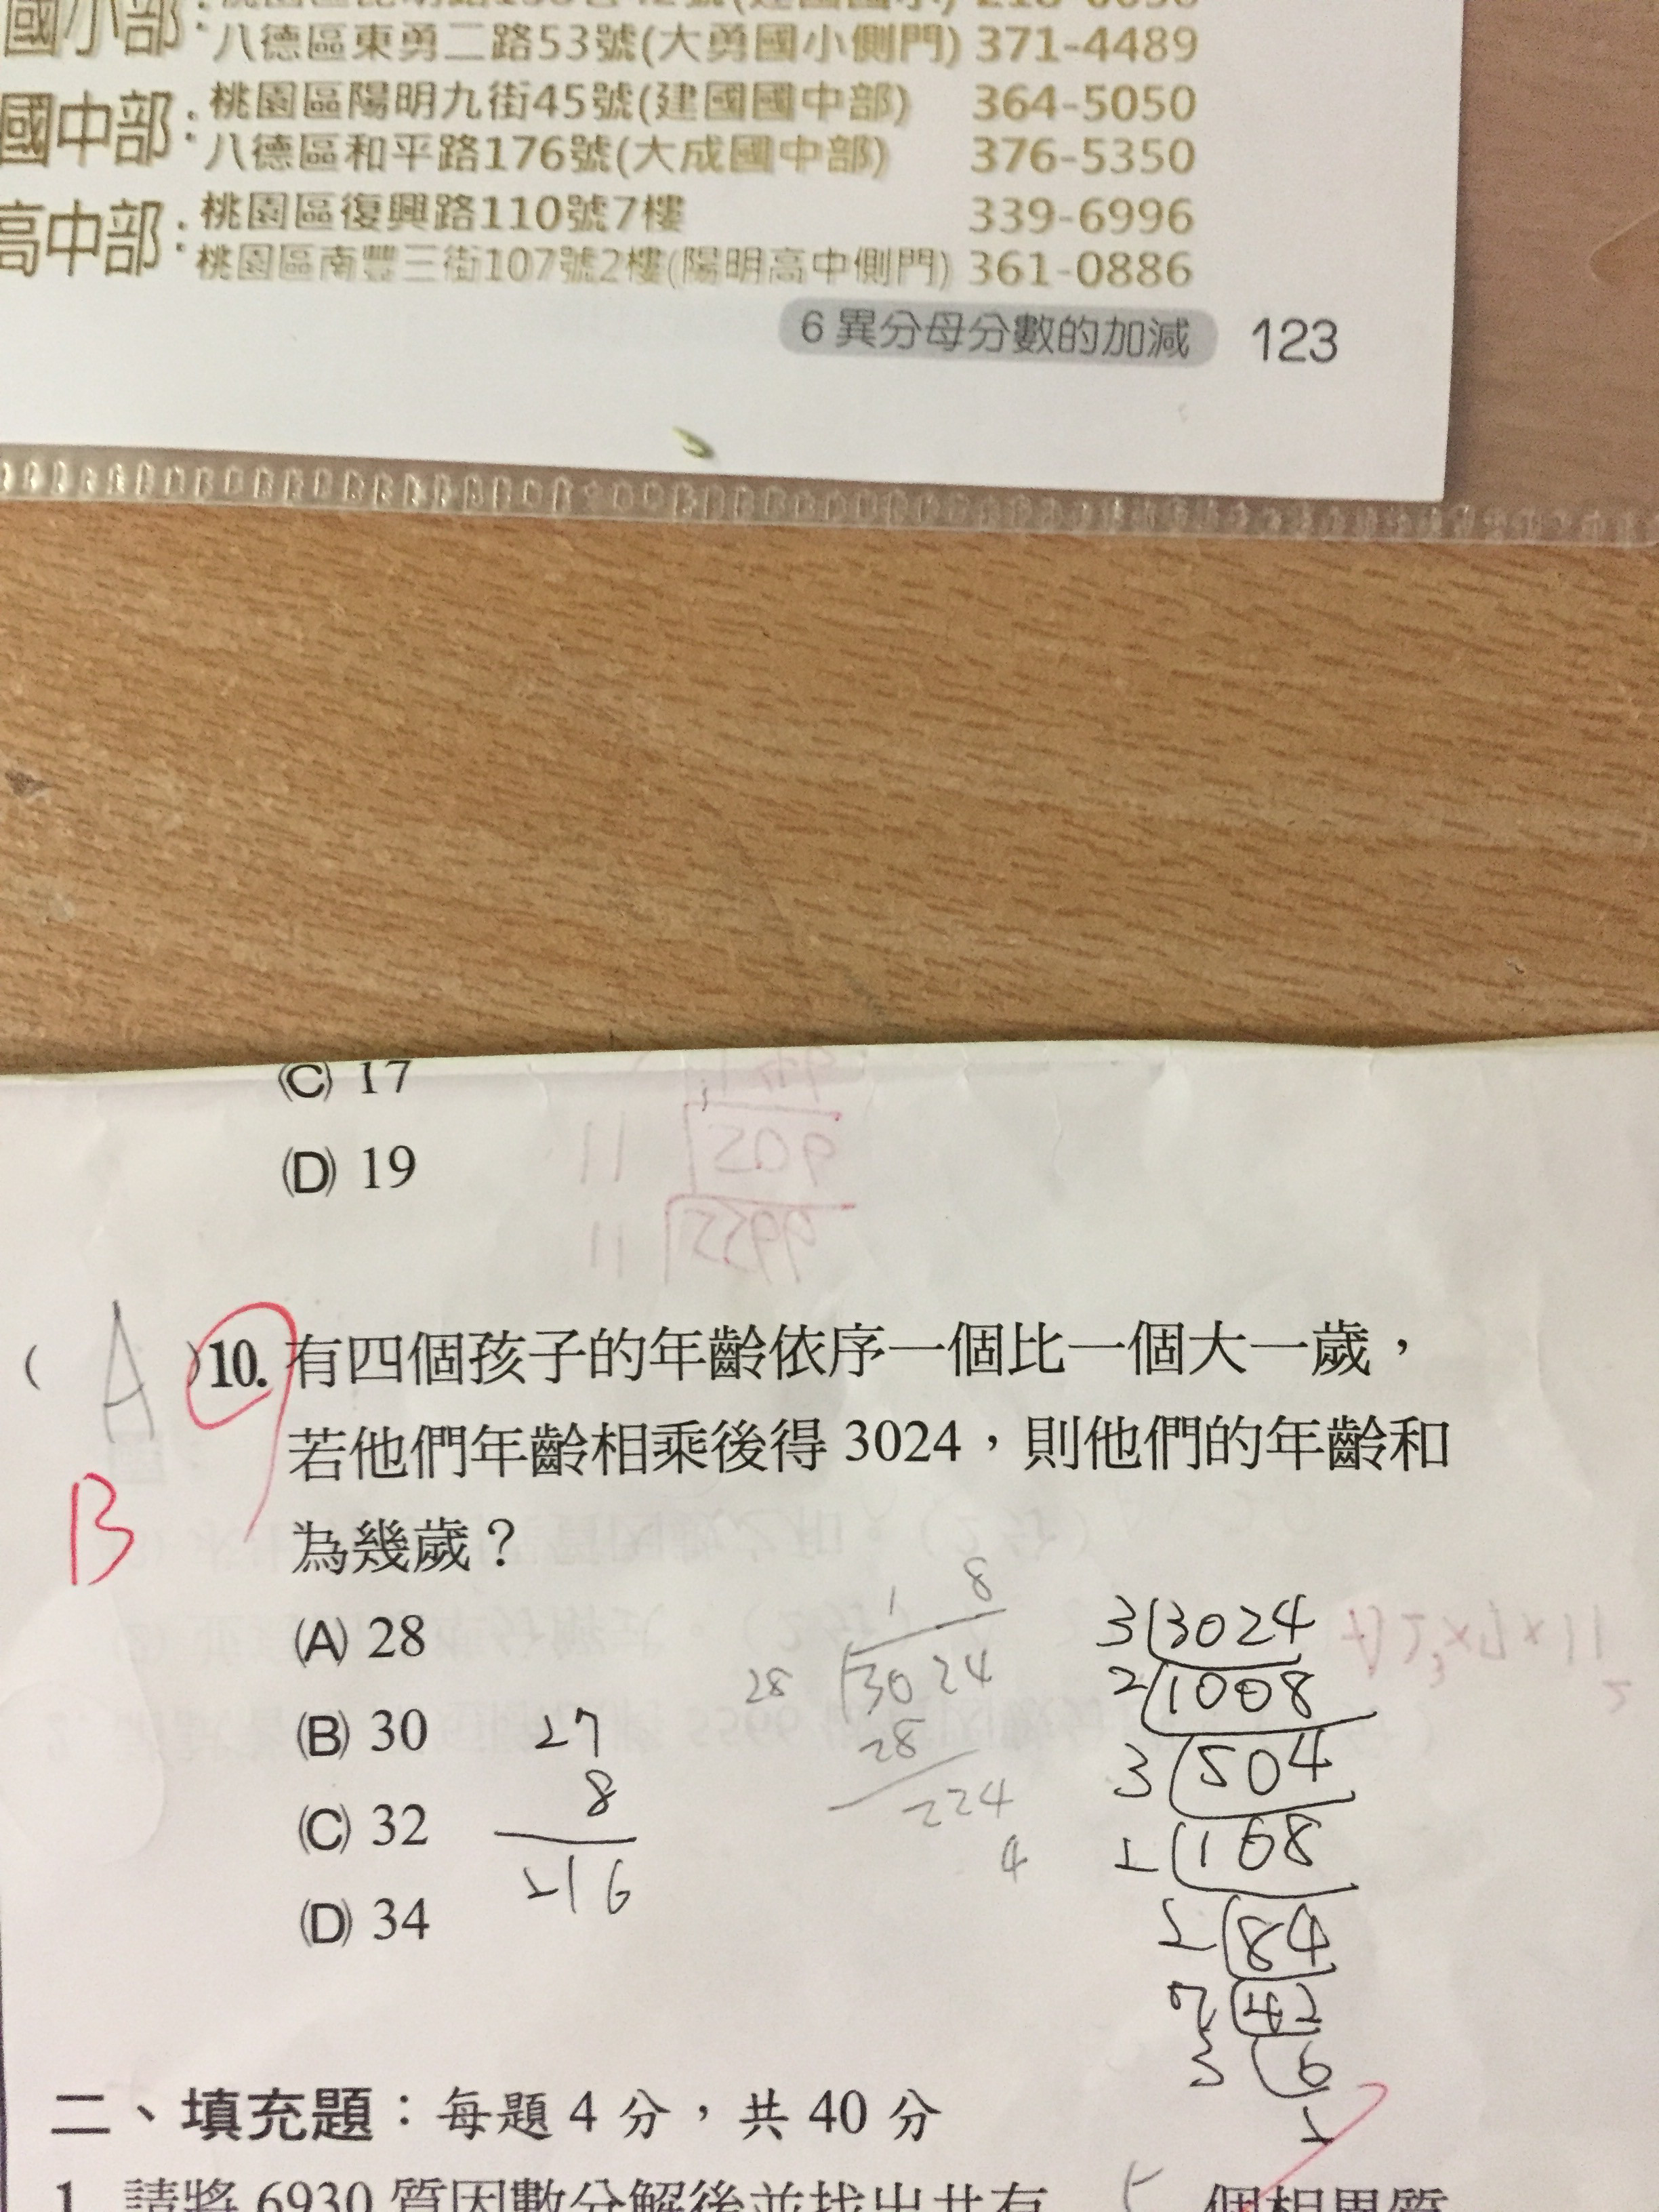 國小部：
八德區東勇二路53號(大勇國小側門) 371-4489
國中部：桃園區陽明九街45號(建國國中部) 364-5050
八德區和平路176號(大成國中部) 376-5350
高中部：桃園區復興路110號7樓 339-6996
桃園區南豐三街107號2樓(陽明高中側門) 361-0886
6 異分母分數的加減 123
(C) 17
(D) 19
( A )10. 有四個孩子的年齡依序一個比一個大一歲，
若他們年齡相乘後得 3024，則他們的年齡和
B
為幾歲？
(A) 28
(B) 30
(C) 32
(D) 34
27
8
216
1 8
28 3024
28
224
4
3 3024
2 1008
3 504
2 168
2 84
7 42
3 6
2
二、填充題：每題 4 分，共 40 分
1. 請將 6930 質因數分解後並找出共有 個相異質